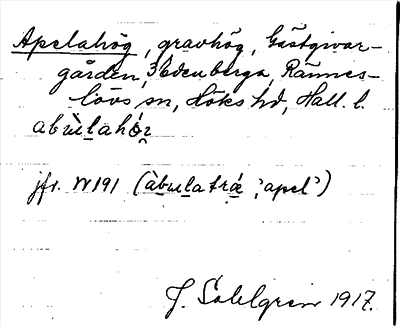 Apelahög, gravhög, Gästgivar-
gården, Edenberga, Rännes-
lövs sn, Höks hd, Hall. l.
abùlahó̤r
jfr. W191 (àbulatrá̤ 'apel')
J. Sahlgren 1917.